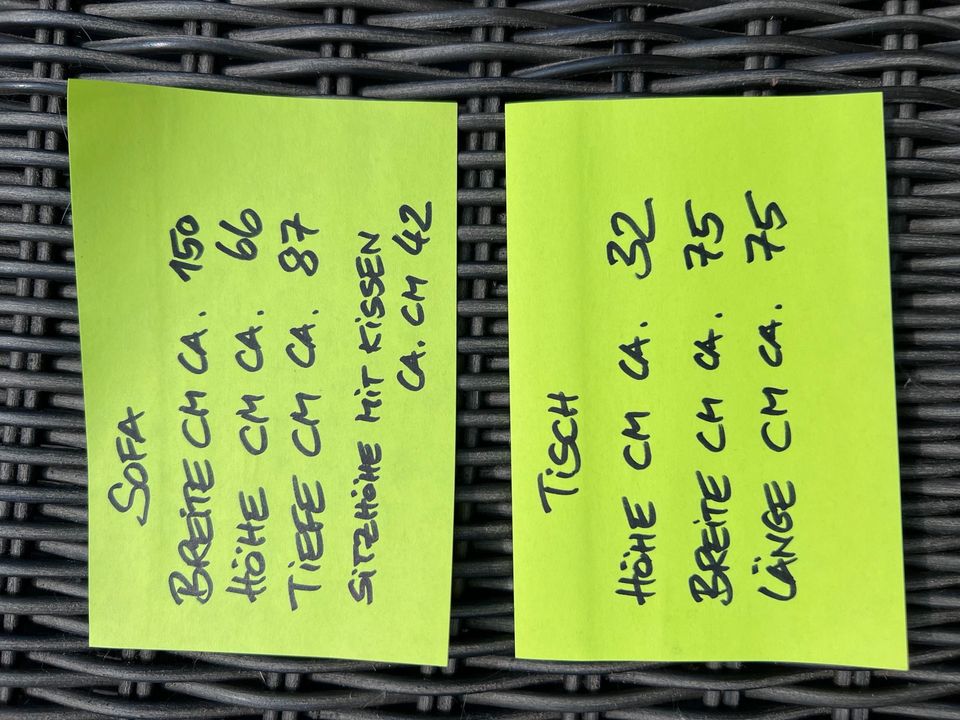 SOFA
BREITE CM CA. 150
HÖHE CM CA. 66
TIEFE CM CA. 87
SITZHÖHE MIT KISSEN
CA. CM 42
TISCH
HÖHE CM CA. 32
BREITE CM CA. 75
LÄNGE CM CA. 75